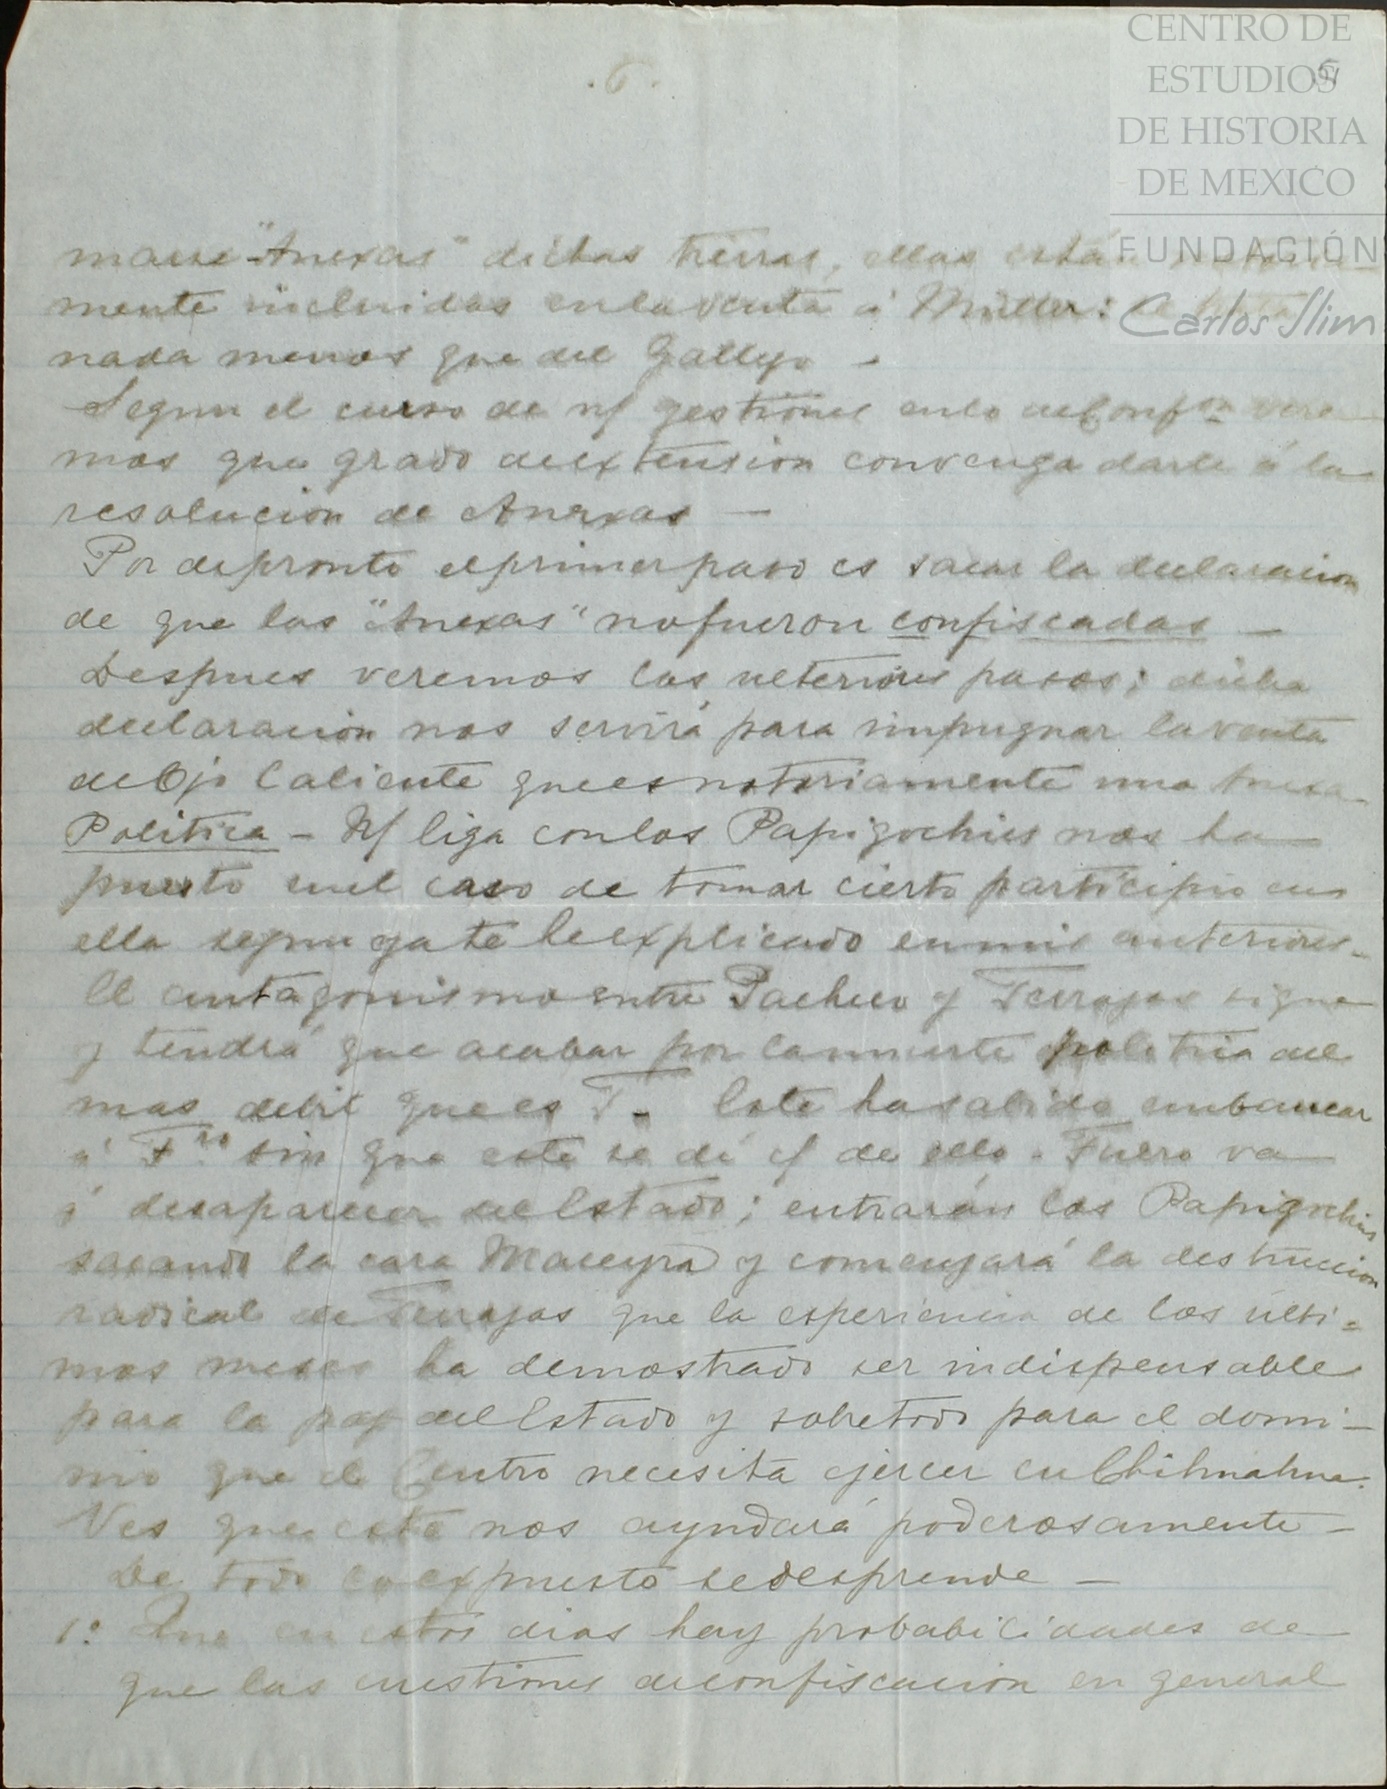 CENTRO DE
ESTUDIOS
DE HISTORIA
DE MEXICO
FUNDACIÓN
Carlos Slim
5
marse "Anexas" dichas tierras, ellas está
mente incluidas en la venta á Müller:
nada menos que del Gallego -
Segun el curso de n/ gestiones en lo de Conf.on vere
mos que grado de extension convenga darle á la
resolucion de Anexas —
Por depronto el primer paso es sacar la declaracion
de que las "Anexas" no fueron confiscadas —
Despues veremos los ulteriores pasos; dicha
declaracion nos servirá para impugnar la venta
de Ojo Caliente que es notoriamente una Anexa
Politica - N/ liga con los Papigochies nos ha
puesto en el caso de tomar cierto participio en
ella segun ya te he explicado en mis anteriores -
El antagonismo entre Pacheco y Terrazas sigue
y tendrá que acabar por la muerte politica del
mas debil que es T. - Este ha sabido embaucar
á F.ro sin que este se dé c/ de ello - Fuero va
á desaparecer del Estado; entrarán los Papigochies
sacando la cara Maceyra y comenzará la destruccion
radical de Terrazas que la esperiencia de los ulti=
mos meses ha demostrado ser indispensable
para la paz del Estado y sobretodo para el domi-
nio que el Centro necesita ejercer en Chihuahua.
Ves que esto nos ayudará poderosamente -
De todo lo expuesto se desprende -
1.° Que en estos dias hay probabilidades de
que las cuestiones de confiscacion en general